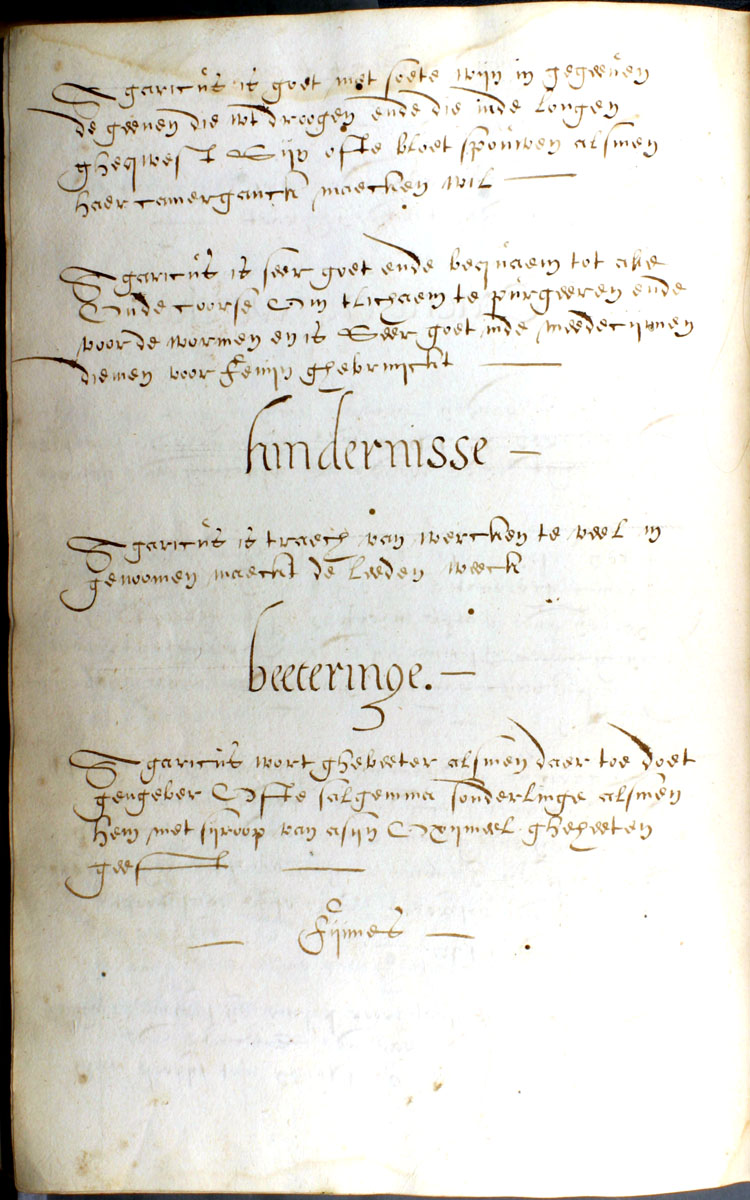 Agaricus is goet met soete wijn in gegeeven
de geenen die wt droogen ende die inde longen
ghequest Sijn ofte bloet spouwen alsmen
haer camerganck maecken wil —
Agaricus is seer goet ende bequaem tot alle
Oude coorse Om tlichaem te purgeeren ende
voor de wormen en is Seer goet inde meedecijnen
diemen voor fenijn ghebruijckt —
hindernisse —
Agaricus is traech van wercken te veel in
genoomen maeckt de leeden weeck
beeteringe. —
Agaricus wort ghebeeter alsmen daer toe doet
gengeber Ofte salgemma sonderlinge alsmen
hem met sijroop van asijn Oxijmeel gheheeten
geeft —
— Fijnnes —